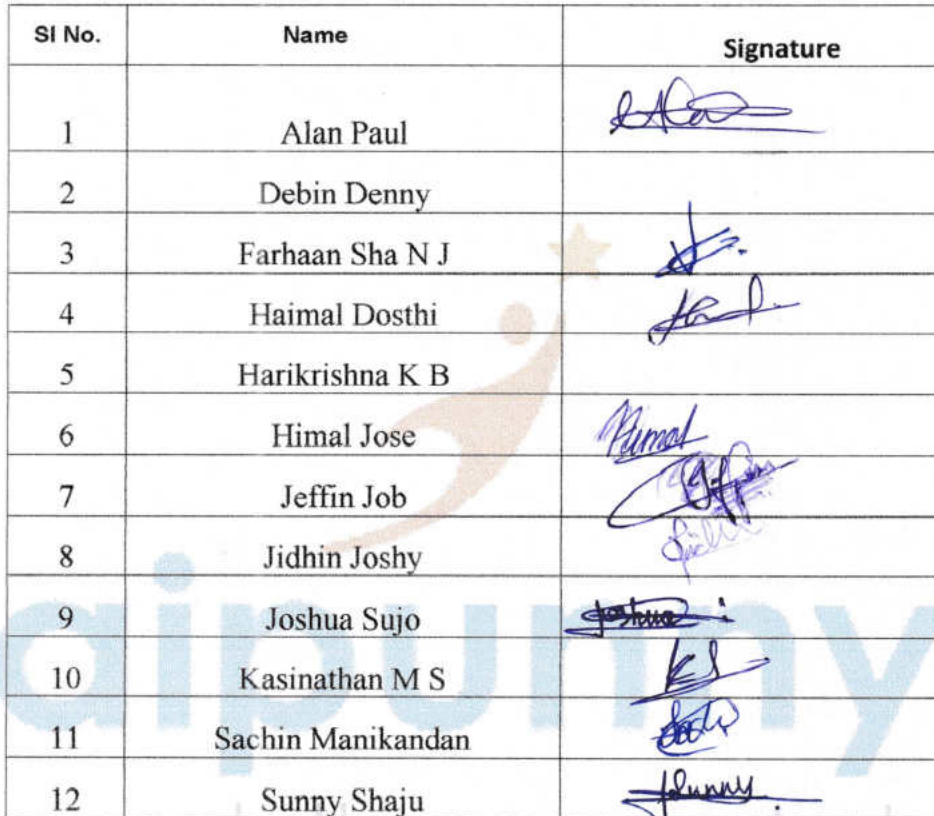 SI No. Name Signature
1 Alan Paul
2 Debin Denny
3 Farhaan Sha N J
4 Haimal Dosthi
5 Harikrishna K B
6 Himal Jose Himal
7 Jeffin Job
8 Jidhin Joshy
9 Joshua Sujo Joshua
10 Kasinathan M S KS
11 Sachin Manikandan
12 Sunny Shaju Sunny
aipunny